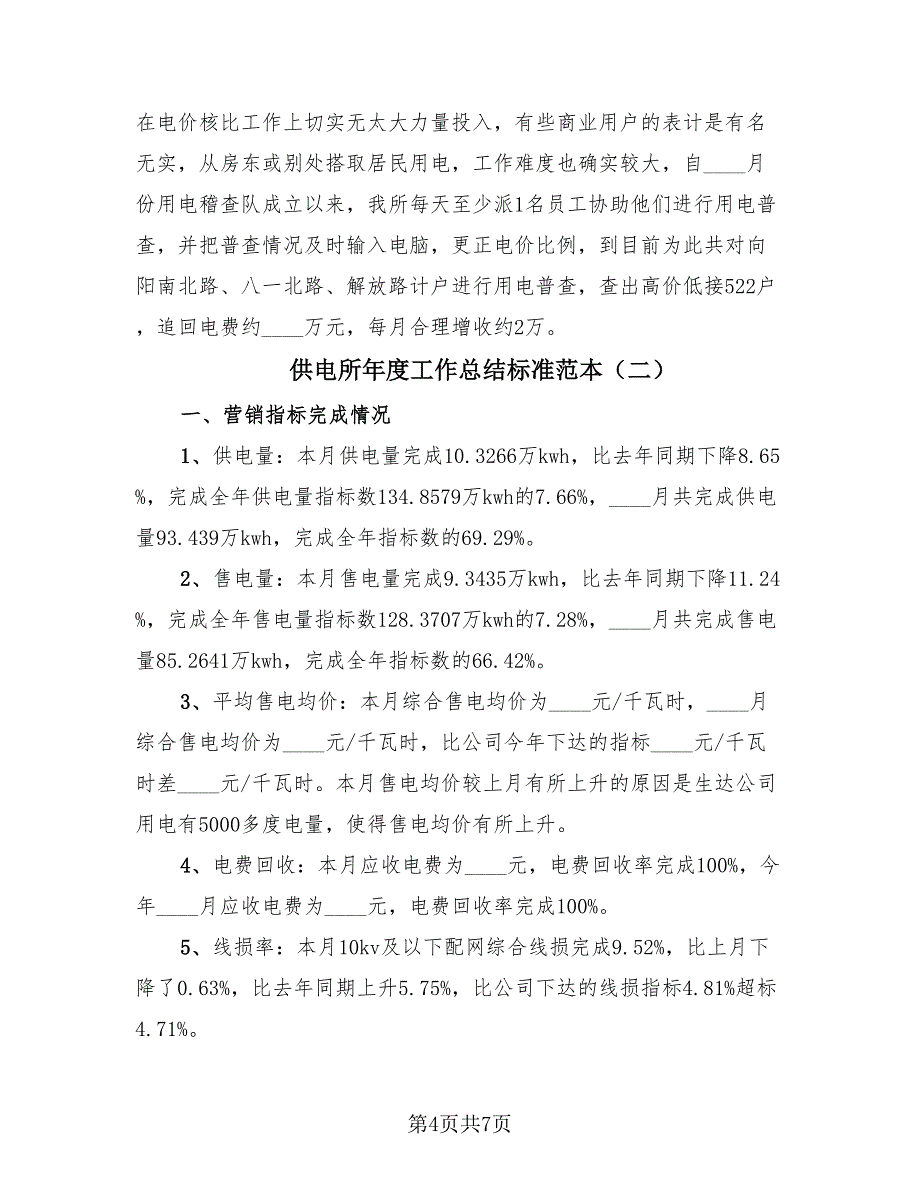 在电价核比工作上切实无太大力量投入，有些商业用户的表计是有名
无实，从房东或别处搭取居民用电，工作难度也确实较大，自____月
份用电稽查队成立以来，我所每天至少派1名员工协助他们进行用电普
查，并把普查情况及时输入电脑，更正电价比例，到目前为此共对向
阳南北路、八一北路、解放路计户进行用电普查，查出高价低接522户
，追回电费约____万元，每月合理增收约2万。
供电所年度工作总结标准范本（二）
一、营销指标完成情况
1、供电量：本月供电量完成10.3266万kwh，比去年同期下降8.65
%，完成全年供电量指标数134.8579万kwh的7.66%，____月共完成供电
量93.439万kwh，完成全年指标数的69.29%。
2、售电量：本月售电量完成9.3435万kwh，比去年同期下降11.24
%，完成全年售电量指标数128.3707万kwh的7.28%，____月共完成售电
量85.2641万kwh，完成全年指标数的66.42%。
3、平均售电均价：本月综合售电均价为____元/千瓦时，____月
综合售电均价为____元/千瓦时，比公司今年下达的指标____元/千瓦
时差____元/千瓦时。本月售电均价较上月有所上升的原因是生达公司
用电有5000多度电量，使得售电均价有所上升。
4、电费回收：本月应收电费为____元，电费回收率完成100%，今
年____月应收电费为____元，电费回收率完成100%。
5、线损率：本月10kv及以下配网综合线损完成9.52%，比上月下
降了0.63%，比去年同期上升5.75%，比公司下达的线损指标4.81%超标
4.71%。
第4页共7页